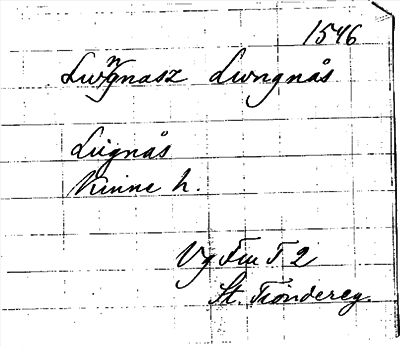 1546
Lwngnasz Lwngnås
Lugnås
Kinne h.
Vg Fru T 2
St. Tiondereg.